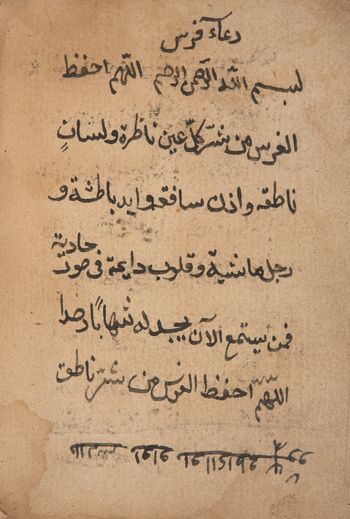 دعاء فرس
بسم الله الرحمن الرحيم اللهم احفظ
الفرس من شر كل عين ناظرة ولسان
ناطقه واذن سامعه وايد باطشة و
رجل ماشية وقلوب داعية في صدور
فمن يستمع الآن يجد له شهابا رصدا
اللهم احفظ الفرس من شر ناطق